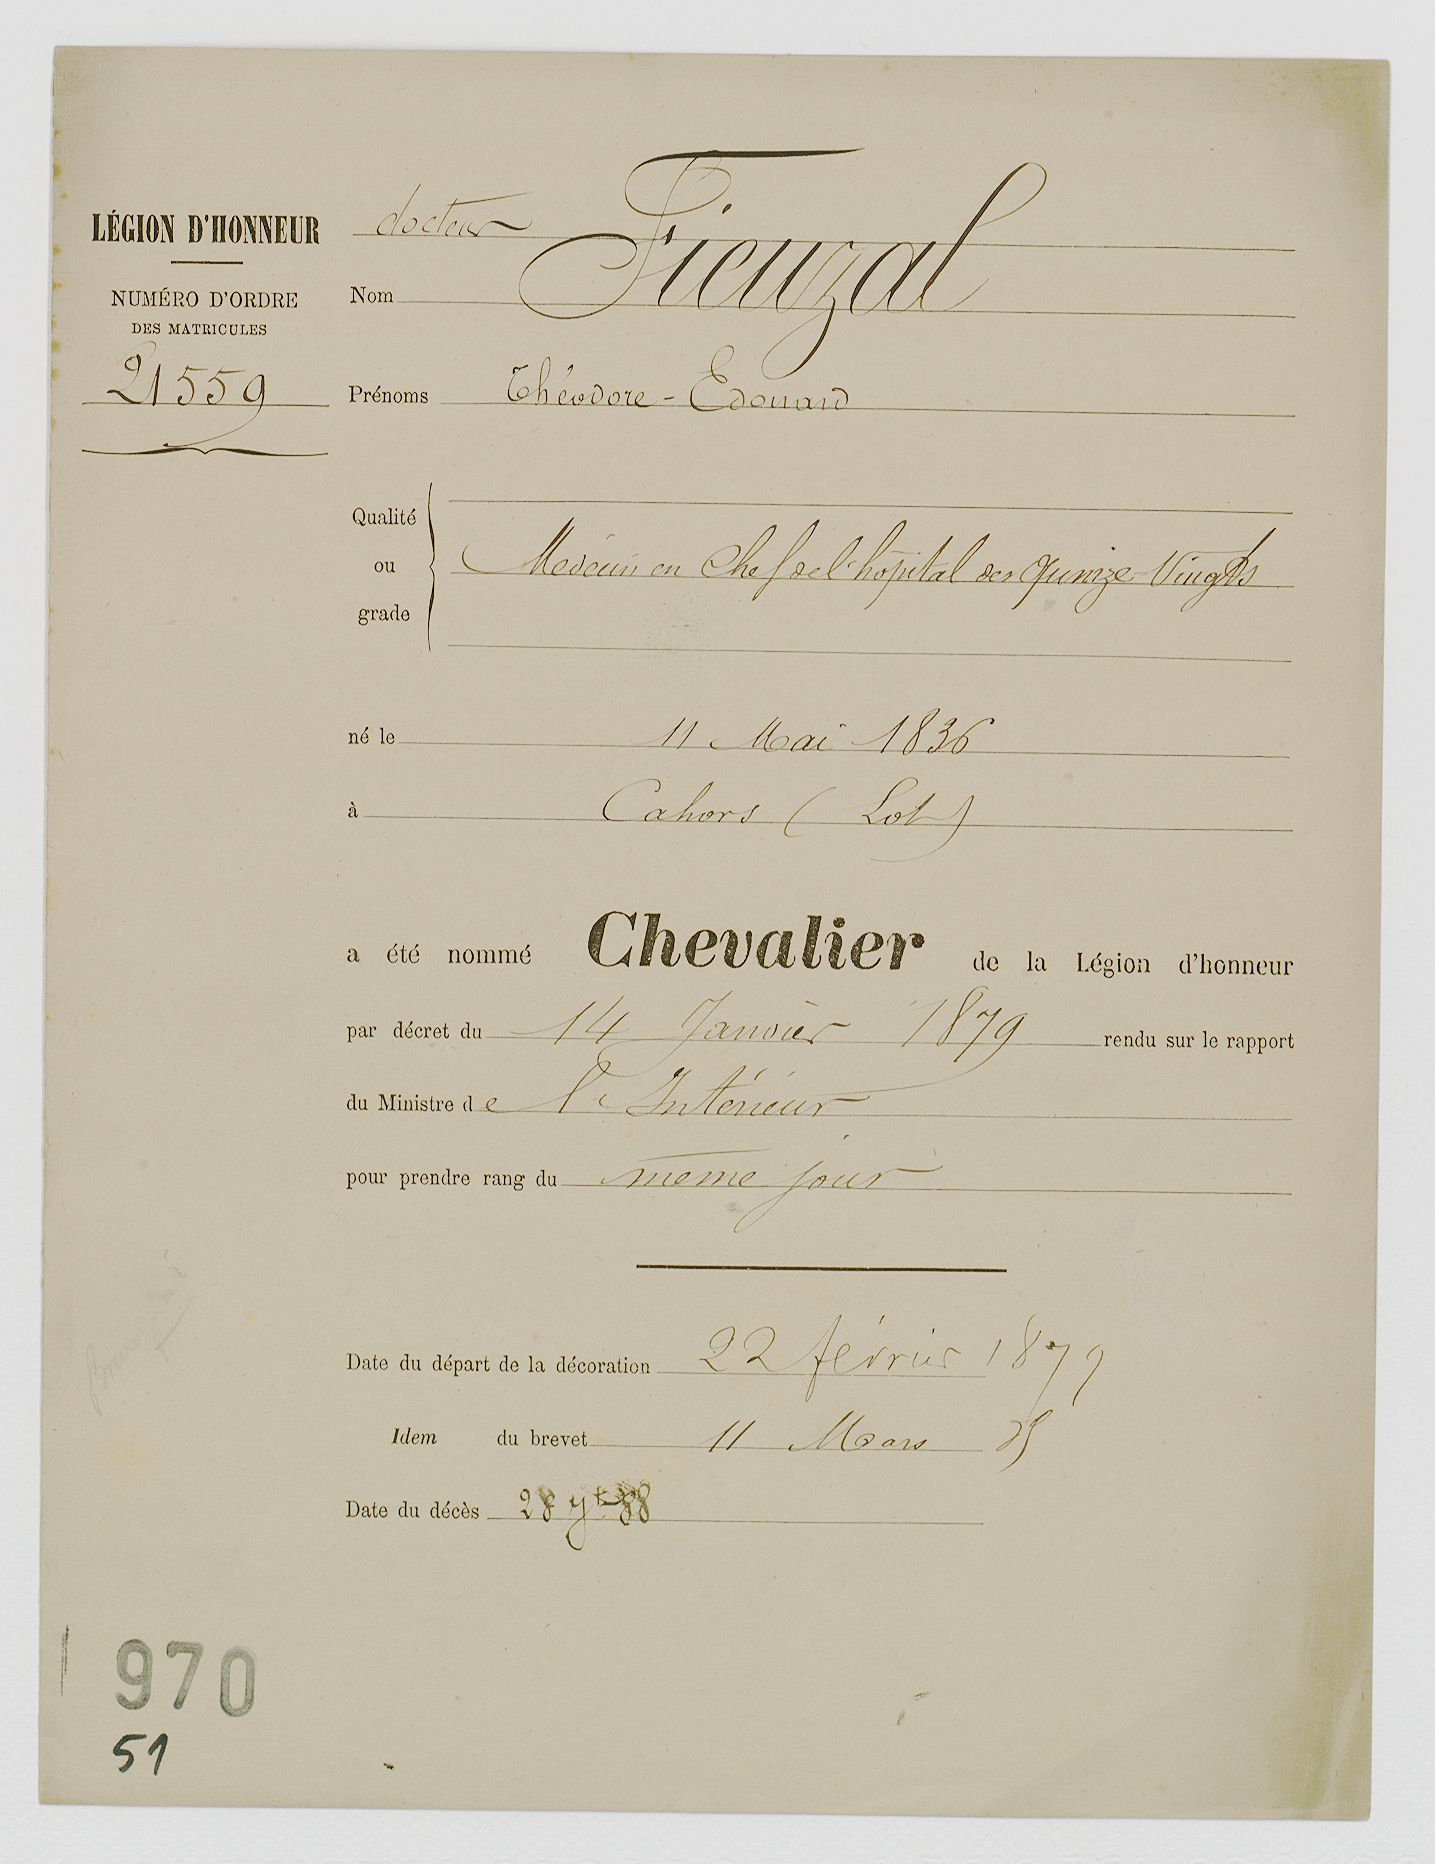 LÉGION D'HONNEUR
NUMÉRO D'ORDRE
DES MATRICULES
21559
docteur
Nom Fieuzal
Prénoms Théodore-Edouard
Qualité
ou
grade
Medecin en Chef de l'hôpital des Quinze Vingts
né le 11 Mai 1836
à Cahors (Lot)
a été nommé Chevalier de la Légion d'honneur
par décret du 14 Janvier 1879 rendu sur le rapport
du Ministre de l'Intérieur
pour prendre rang du même jour
Date du départ de la décoration 22 février 1879
Idem du brevet 11 Mars
Date du décès 28 88
970
51